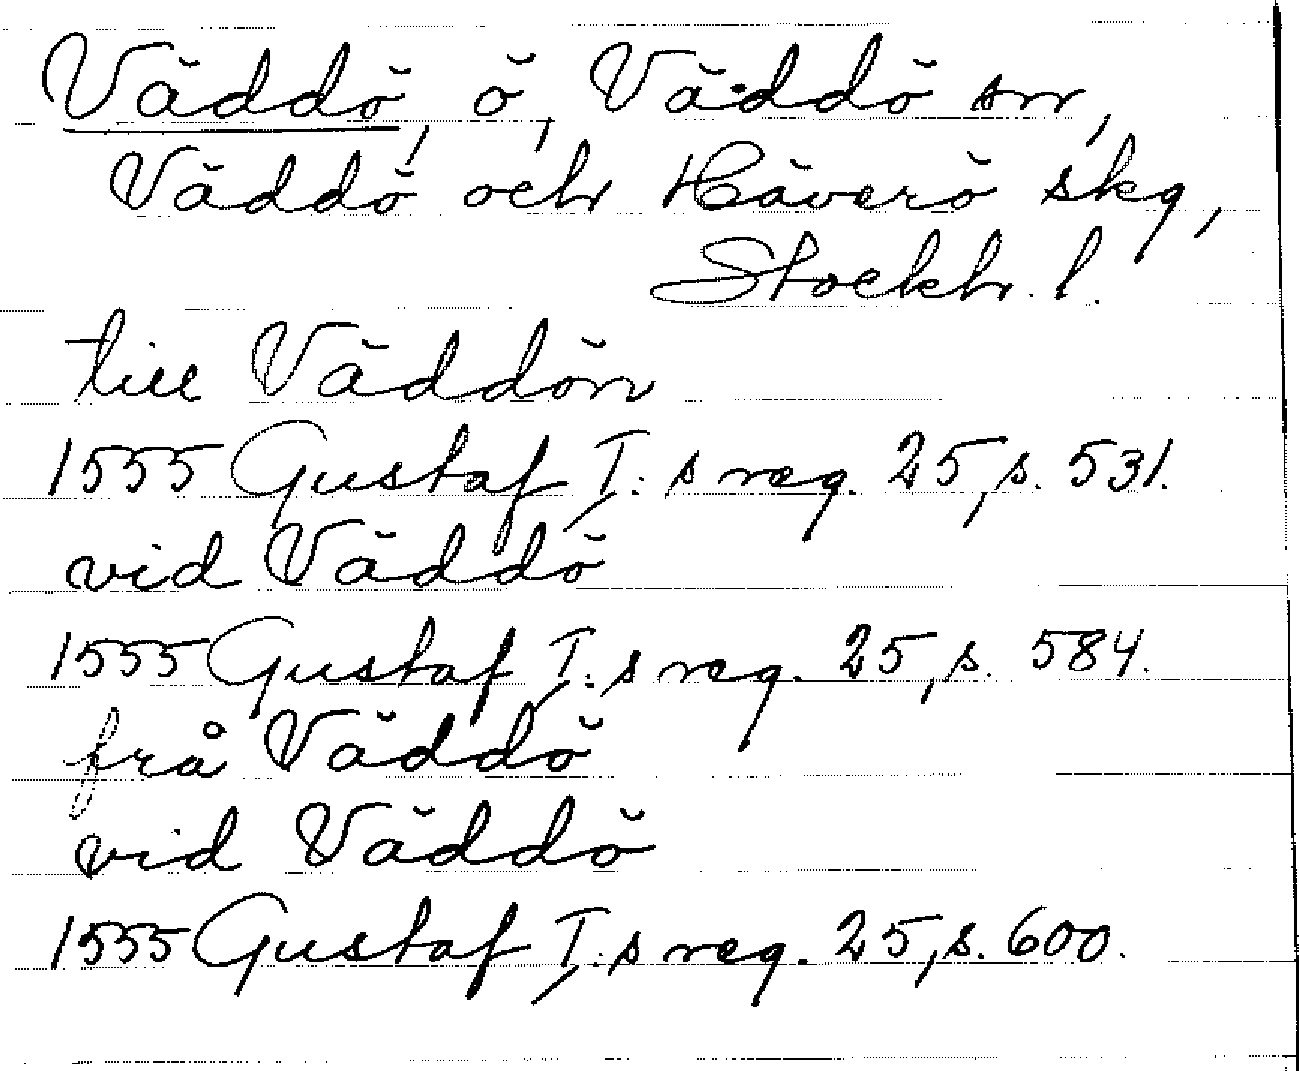 Väddö, ö, Väddö sn,
Väddö och Häverö skg,
Stockh. l.
till Väddön
1555 Gustaf I:s reg. 25, s. 531.
vid Väddö
1555 Gustaf I:s reg. 25, s. 584.
från Väddö
vid Väddö
1555 Gustaf I:s reg. 25, s. 600.